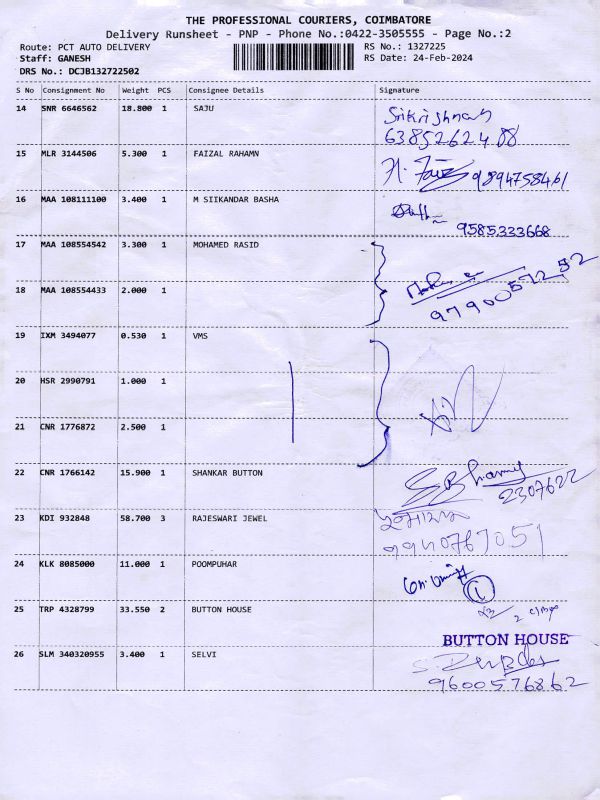 THE PROFESSIONAL COURIERS, COIMBATORE
Delivery Runsheet - PNP - Phone No.:0422-3505555 - Page No.:2
Route: PCT AUTO DELIVERY RS No.: 1327225
Staff: GANESH RS Date: 24-Feb-2024
DRS No.: DCJB132722502
S No Consignment No Weight PCS Consignee Details Signature
14 SNR 6646562 18.800 1 SAJU Srikrishnan
6385262488
15 MLR 3144506 5.300 1 FAIZAL RAHAMN 9894758461
16 MAA 108111100 3.400 1 M SIIKANDAR BASHA
9585333668
17 MAA 108554542 3.300 1 MOHAMED RASID
18 MAA 108554433 2.000 1 9790057252
19 IXM 3494077 0.530 1 VMS
20 HSR 2990791 1.000 1
21 CNR 1776872 2.500 1
22 CNR 1766142 15.900 1 SHANKAR BUTTON
2307622
23 KDI 932848 58.700 3 RAJESWARI JEWEL
24 KLK 8085000 11.000 1 POOMPUHAR
1
25 TRP 4328799 33.550 2 BUTTON HOUSE
BUTTON HOUSE
26 SLM 340320955 3.400 1 SELVI
9600576862